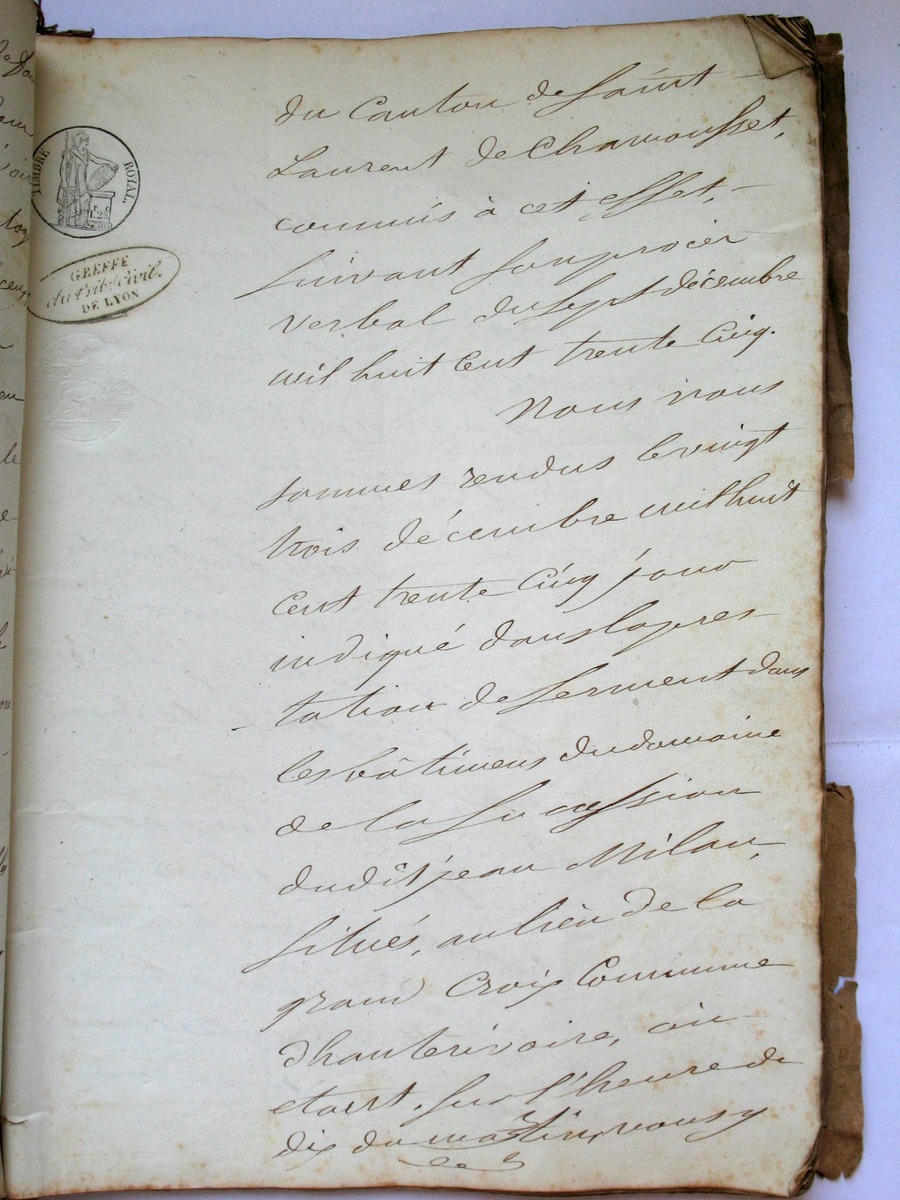 TIMBRE ROYAL.
GREFFE
du Trib. Civil.
DE LYON
du Canton de Saint
Laurent de Chamousset,
commis à cet effet,
suivant son procès
verbal du sept décembre
mil huit cent trente cinq.
Nous nous
sommes rendus le vingt
trois décembre mil huit
cent trente cinq jour
indiqué dans la pres
tation de serment dans
les bâtimens du domaine
de la succession
dudit jean Milan,
situés, au lieu de la
grand Croix Commune
d'hauterivoire, où
étant, sur l'heure de
dix du matin, nous y